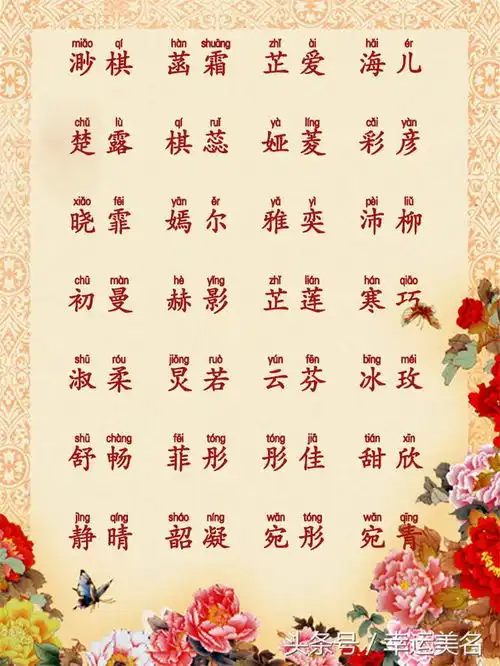 miǎo qí hàn shuāng zhǐ ài hǎi ér
渺棋 菡霜 芷爱 海儿
chǔ lù qí ruǐ yà líng cǎi yàn
楚露 棋蕊 娅菱 彩彦
xiǎo fēi yān ěr yǎ yì pèi liǔ
晓霏 嫣尔 雅奕 沛柳
chū màn hè yǐng zhǐ lián hán qiǎo
初曼 赫影 芷莲 寒巧
shū róu jiǒng ruò yún fēn bīng méi
淑柔 炅若 云芬 冰玫
shū chàng fēi tóng tóng jiā tián xīn
舒畅 菲彤 彤佳 甜欣
jìng qíng sháo níng wǎn tóng wǎn qīng
静晴 韶凝 宛彤 宛青
头条号/幸运美名